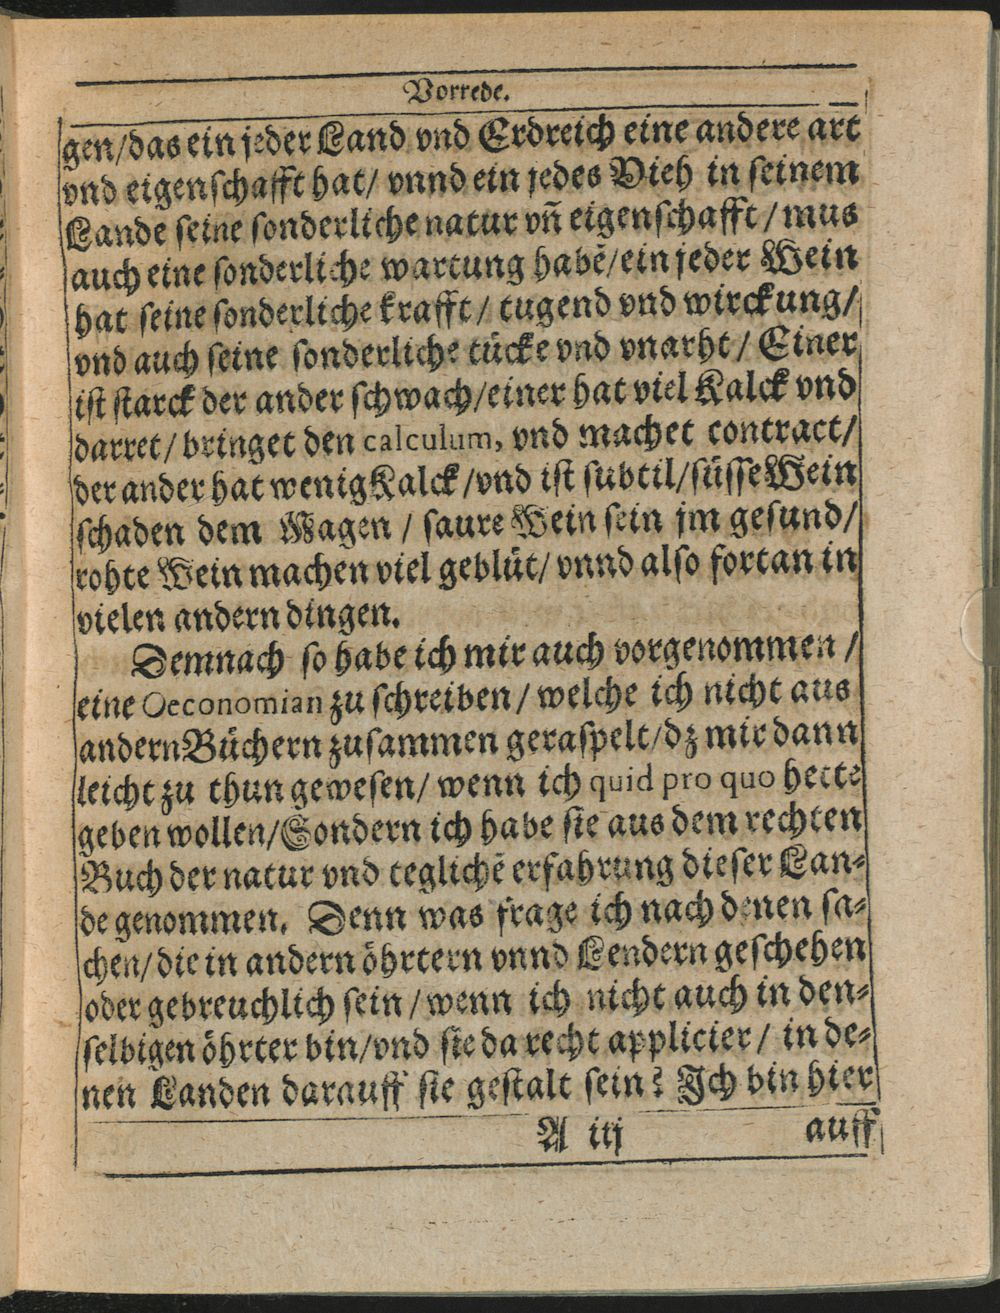 Vorrede.
gen/das ein jeder Land vnd Erdreich eine andere art
vnd eigenschafft hat/ vnnd ein jedes Vieh in seinem
Lande seine sonderliche natur vñ eigenschafft / mus
auch eine sonderliche wartung habẽ/ein jeder Wein
hat seine sonderliche krafft / tugend vnd wirckung/
vnd auch seine sonderliche tücke vnd vnarht / Einer
ist starck der ander schwach/einer hat viel Kalck vnd
darret/ bringet den calculum, vnd machet contract/
der ander hat wenig Kalck /vnd ist subtil/süsse Wein
schaden dem Magen / saure Wein sein jm gesund/
rohte Wein machen viel geblüt/ vnnd also fortan in
vielen andern dingen.
Demnach so habe ich mir auch vorgenommen /
eine Oeconomian zu schreiben / welche ich nicht aus
andern Büchern zusammen geraspelt/dz mir dann
leicht zu thun gewesen/ wenn ich quid pro quo hette
geben wollen/Sondern ich habe sie aus dem rechten
Buch der natur vnd teglichẽ erfahrung dieser Lan-
de genommen. Denn was frage ich nach denen sa-
chen/ die in andern öhrtern vnnd Lendern geschehen
oder gebreuchlich sein / wenn ich nicht auch in den-
selbigen öhrter bin/vnd sie da recht applicier / in de-
nen Landen darauff sie gestalt sein? Ich bin hier
A iij auff